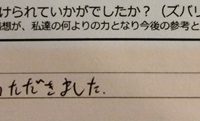 けられていかがでしたか？（ズバリ
感想が、私達の何よりの力となり今後の参考と
ただきました.